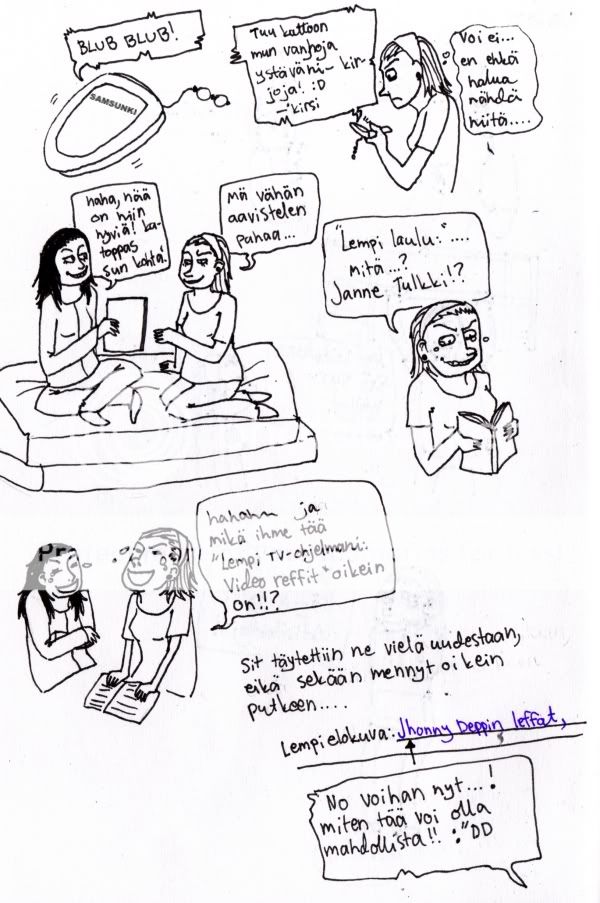 BLUB BLUB!
SAMSUNKI
Tuu kattoon
mun vanhoja
ystäväni-kir-
joja! :D
-kirsi
Voi ei...
en ehkä
halua
nähdä
niitä....
haha, nää
on niin
hyviä! ka-
toppas
sun kohta!
Mä vähän
aavistelen
pahaa...
"Lempi laulu:"....
mitä...?
Janne Tulkki!?
hahaha ja
mikä ihme tää
"Lempi TV-ohjelmani:
Video reffit" oikein
on!!?
Sit täytettiin ne vielä uudestaan,
eikä sekään mennyt oikein
putkeen....
Lempielokuva: Jhonny Deppin leffat,
No voihan nyt...!
miten tää voi olla
mahdollista!! :"DD